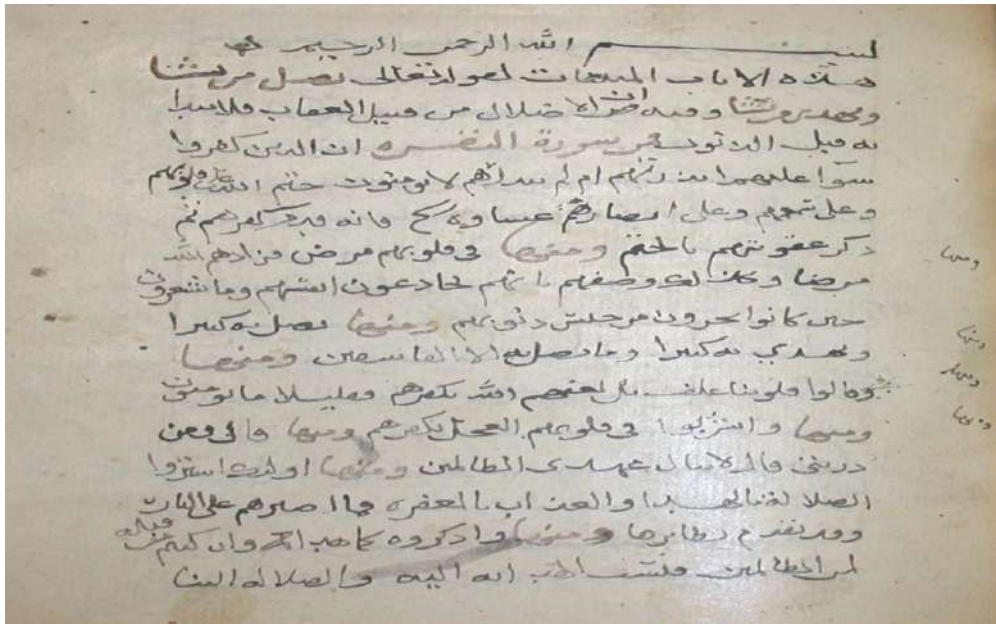 بسم الله الرحمن الرحيم
هذه الايات المبينات لقوله تعالى يضل من يشا
ويهدي من يشا وفيه ان الاضلال من قبيل العقاب فلا يبدا
به قبل الذنوب من سورة البقره ان الذين كفروا
سوآ عليهم اانذرتهم ام لم تنذرهم لا يومنون ختم الله على قلوبهم
وعلى سمعهم وعلى ابصارهم غشاوة فانه قدم كفرهم ثم
ذكر عقوبتهم بالختم ومنها في قلوبهم مرض فزادهم الله
مرضا وكان وصفهم بانهم يخادعون انفسهم وما يشعرون
حين كانوا يجرون من جنس ذنوبهم ومنها يضل به كثيرا
ويهدي به كثيرا وما يضل به الا الفاسقين ومنها
وقالوا قلوبنا غلف بل لعنهم الله بكفرهم فقليلا ما يومنون
ومنها واشربوا في قلوبهم العجل بكفرهم ومنها قال ومن
ذريتي قال لا ينال عهدي الظالمين ومنها اولئك اشتروا
الضلالة بالهدى والعذاب بالمغفره فما اصبرهم على النار
وقد تقدم نظايرها ومنها واذكروه كما هداكم وان كنتم من قبله
لمن الظالمين فنسب اليه والضلاله الينا
ومنها
ومنها
ومنها
ومنها